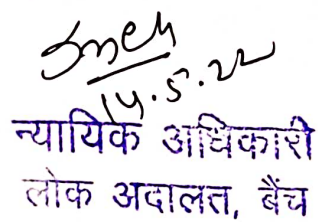 14.5.22
न्यायिक अधिकारी
लोक अदालत, बैंच